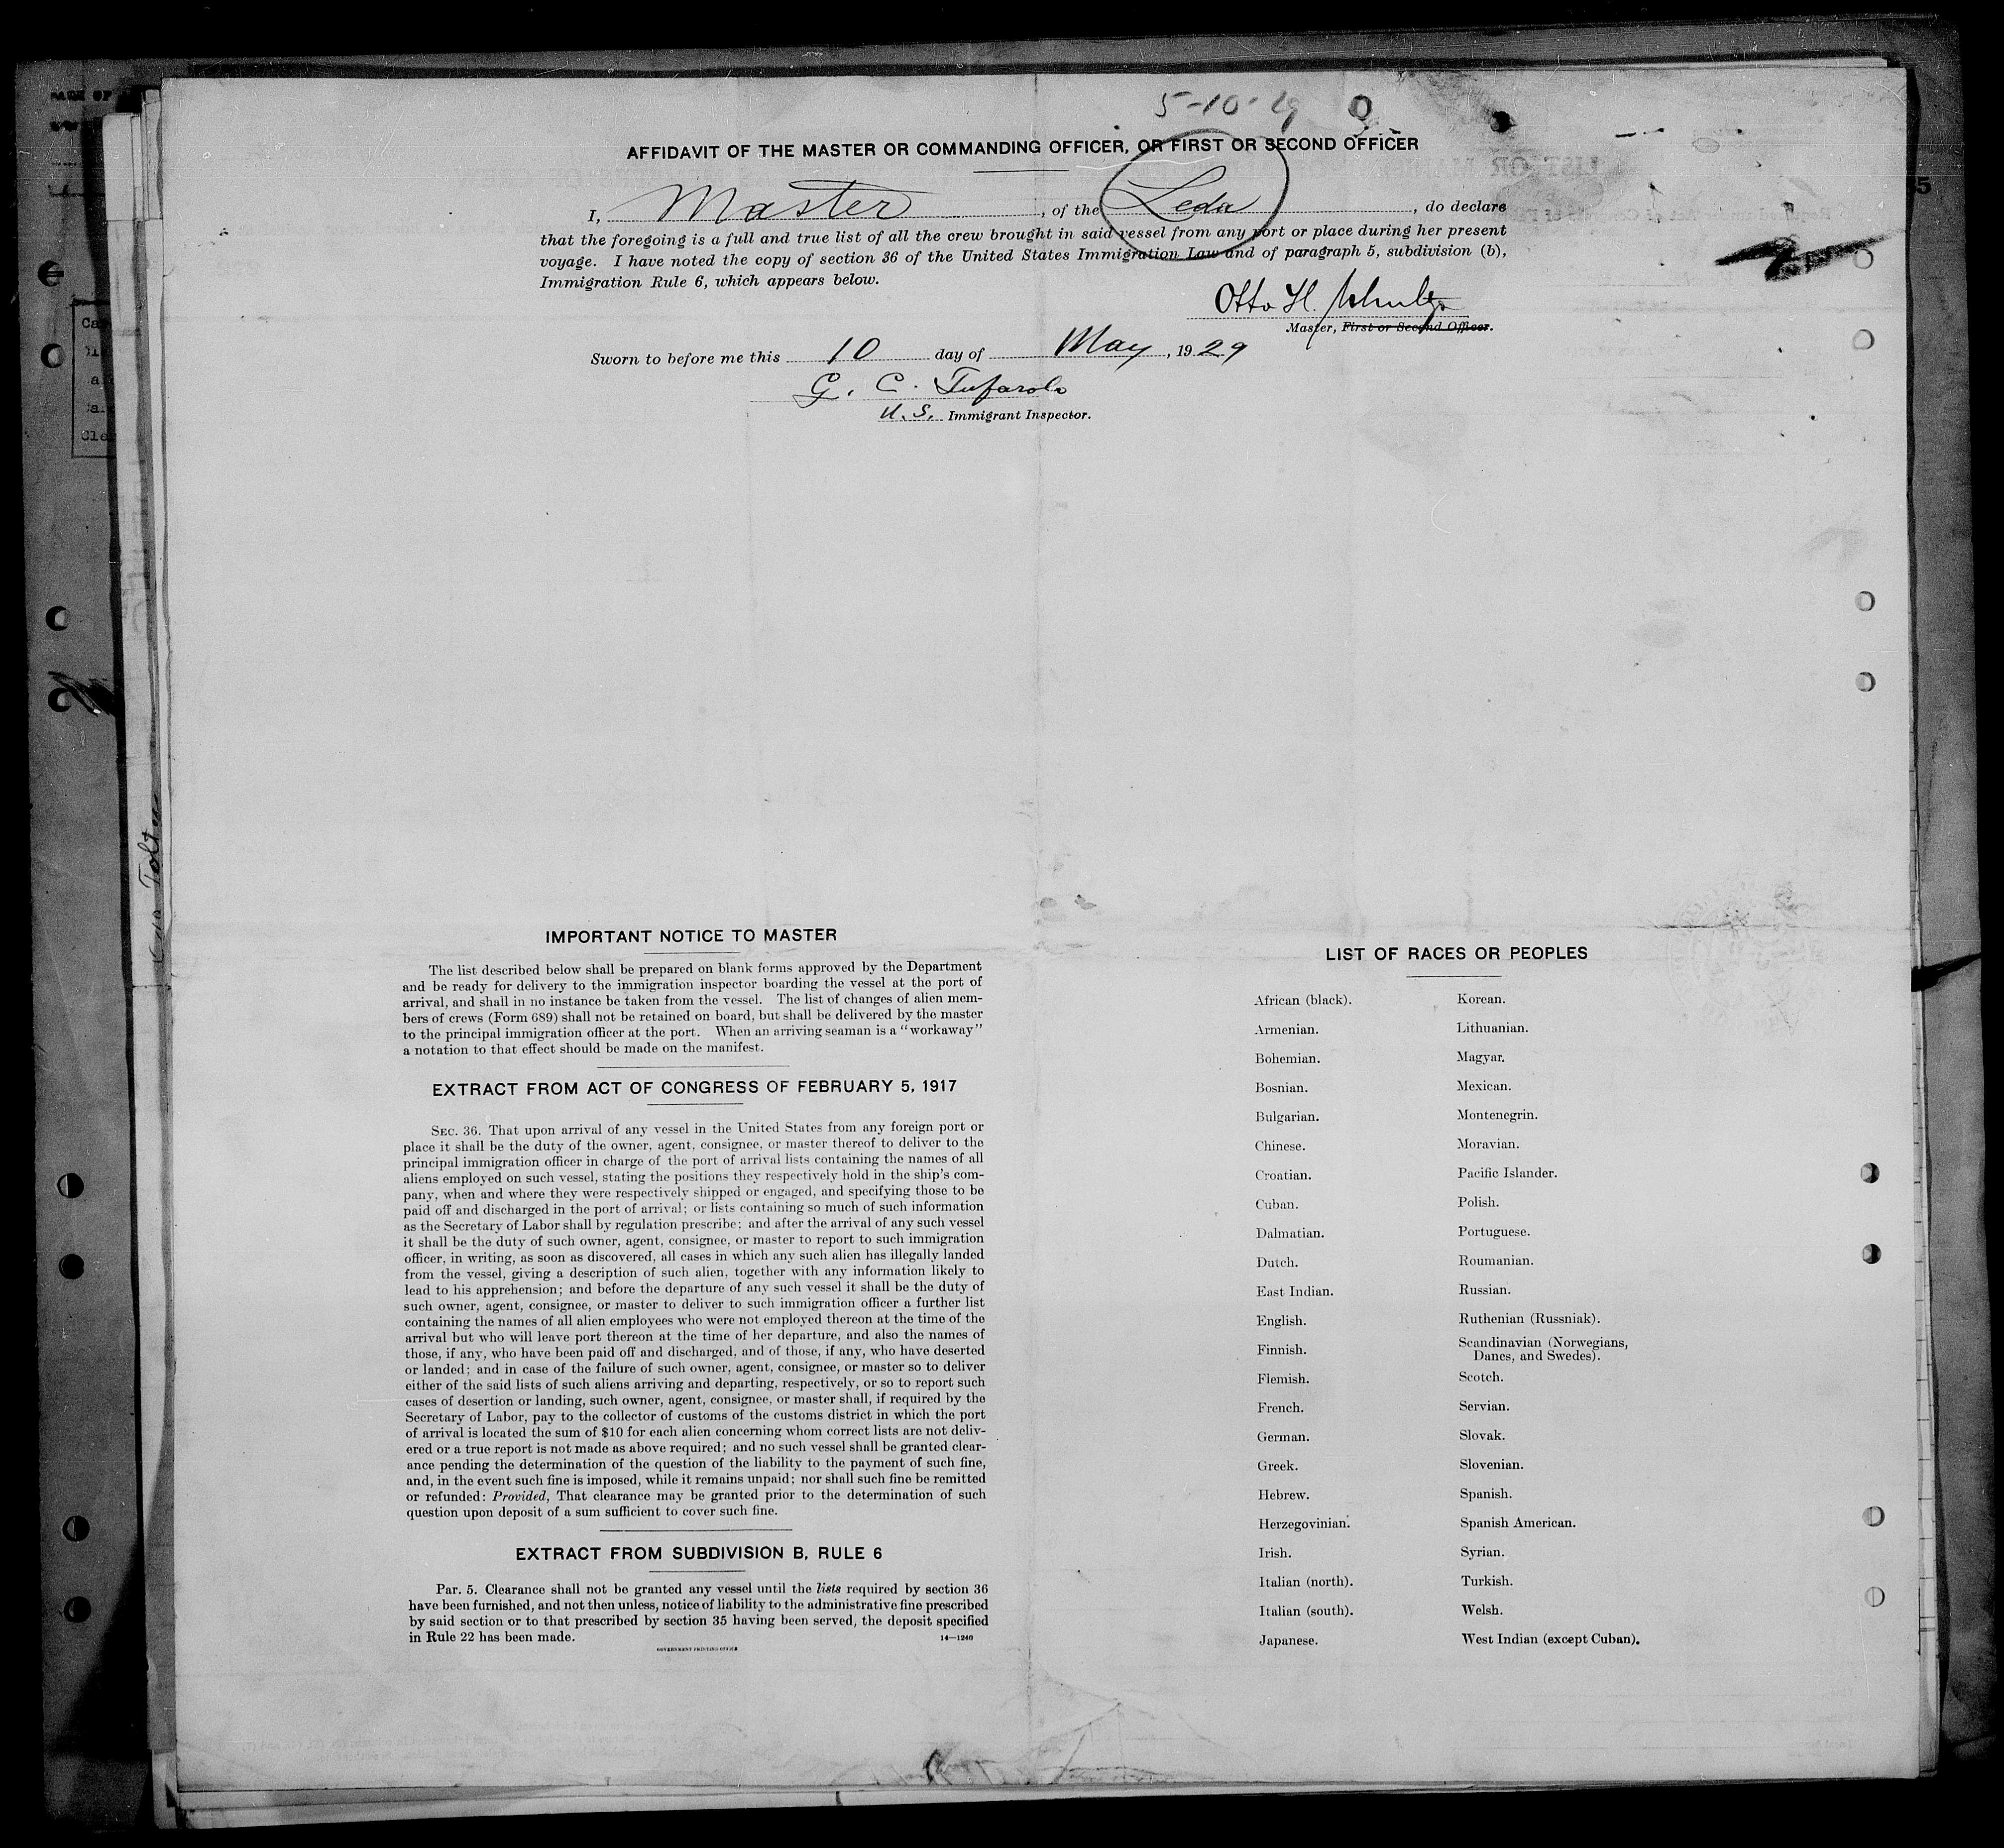 5-10-29
AFFIDAVIT OF THE MASTER OR COMMANDING OFFICER, OR FIRST OR SECOND OFFICER
I, Master, of the Leda, do declare
that the foregoing is a full and true list of all the crew brought in said vessel from any port or place during her present
voyage. I have noted the copy of section 36 of the United States Immigration Law and of paragraph 5, subdivision (b),
Immigration Rule 6, which appears below.
Otto H. Schultz
Master, First or Second Officer.
Sworn to before me this 10 day of May, 1929
G. C. Tufarolo
U. S. Immigrant Inspector.
IMPORTANT NOTICE TO MASTER
The list described below shall be prepared on blank forms approved by the Department
and be ready for delivery to the immigration inspector boarding the vessel at the port of
arrival, and shall in no instance be taken from the vessel. The list of changes of alien mem-
bers of crews (Form 689) shall not be retained on board, but shall be delivered by the master
to the principal immigration officer at the port. When an arriving seaman is a "workaway"
a notation to that effect should be made on the manifest.
EXTRACT FROM ACT OF CONGRESS OF FEBRUARY 5, 1917
SEC. 36. That upon arrival of any vessel in the United States from any foreign port or
place it shall be the duty of the owner, agent, consignee, or master thereof to deliver to the
principal immigration officer in charge of the port of arrival lists containing the names of all
aliens employed on such vessel, stating the positions they respectively hold in the ship's com-
pany, when and where they were respectively shipped or engaged, and specifying those to be
paid off and discharged in the port of arrival; or lists containing so much of such information
as the Secretary of Labor shall by regulation prescribe; and after the arrival of any such vessel
it shall be the duty of such owner, agent, consignee, or master to report to such immigration
officer, in writing, as soon as discovered, all cases in which any such alien has illegally landed
from the vessel, giving a description of such alien, together with any information likely to
lead to his apprehension; and before the departure of any such vessel it shall be the duty of
such owner, agent, consignee, or master to deliver to such immigration officer a further list
containing the names of all alien employees who were not employed thereon at the time of the
arrival but who will leave port thereon at the time of her departure, and also the names of
those, if any, who have been paid off and discharged, and of those, if any, who have deserted
or landed; and in case of the failure of such owner, agent, consignee, or master so to deliver
either of the said lists of such aliens arriving and departing, respectively, or so to report such
cases of desertion or landing, such owner, agent, consignee, or master shall, if required by the
Secretary of Labor, pay to the collector of customs of the customs district in which the port
of arrival is located the sum of $10 for each alien concerning whom correct lists are not deliv-
ered or a true report is not made as above required; and no such vessel shall be granted clear-
ance pending the determination of the question of the liability to the payment of such fine,
and, in the event such fine is imposed, while it remains unpaid; nor shall such fine be remitted
or refunded: Provided, That clearance may be granted prior to the determination of such
question upon deposit of a sum sufficient to cover such fine.
EXTRACT FROM SUBDIVISION B, RULE 6
Par. 5. Clearance shall not be granted any vessel until the lists required by section 36
have been furnished, and not then unless, notice of liability to the administrative fine prescribed
by said section or to that prescribed by section 35 having been served, the deposit specified
in Rule 22 has been made.
14—1240
GOVERNMENT PRINTING OFFICE
LIST OF RACES OR PEOPLES
African (black).
Armenian.
Bohemian.
Bosnian.
Bulgarian.
Chinese.
Croatian.
Cuban.
Dalmatian.
Dutch.
East Indian.
English.
Finnish.
Flemish.
French.
German.
Greek.
Hebrew.
Herzegovinian.
Irish.
Italian (north).
Italian (south).
Japanese.
Korean.
Lithuanian.
Magyar.
Mexican.
Montenegrin.
Moravian.
Pacific Islander.
Polish.
Portuguese.
Roumanian.
Russian.
Ruthenian (Russniak).
Scandinavian (Norwegians,
Danes, and Swedes).
Scotch.
Servian.
Slovak.
Slovenian.
Spanish.
Spanish American.
Syrian.
Turkish.
Welsh.
West Indian (except Cuban).